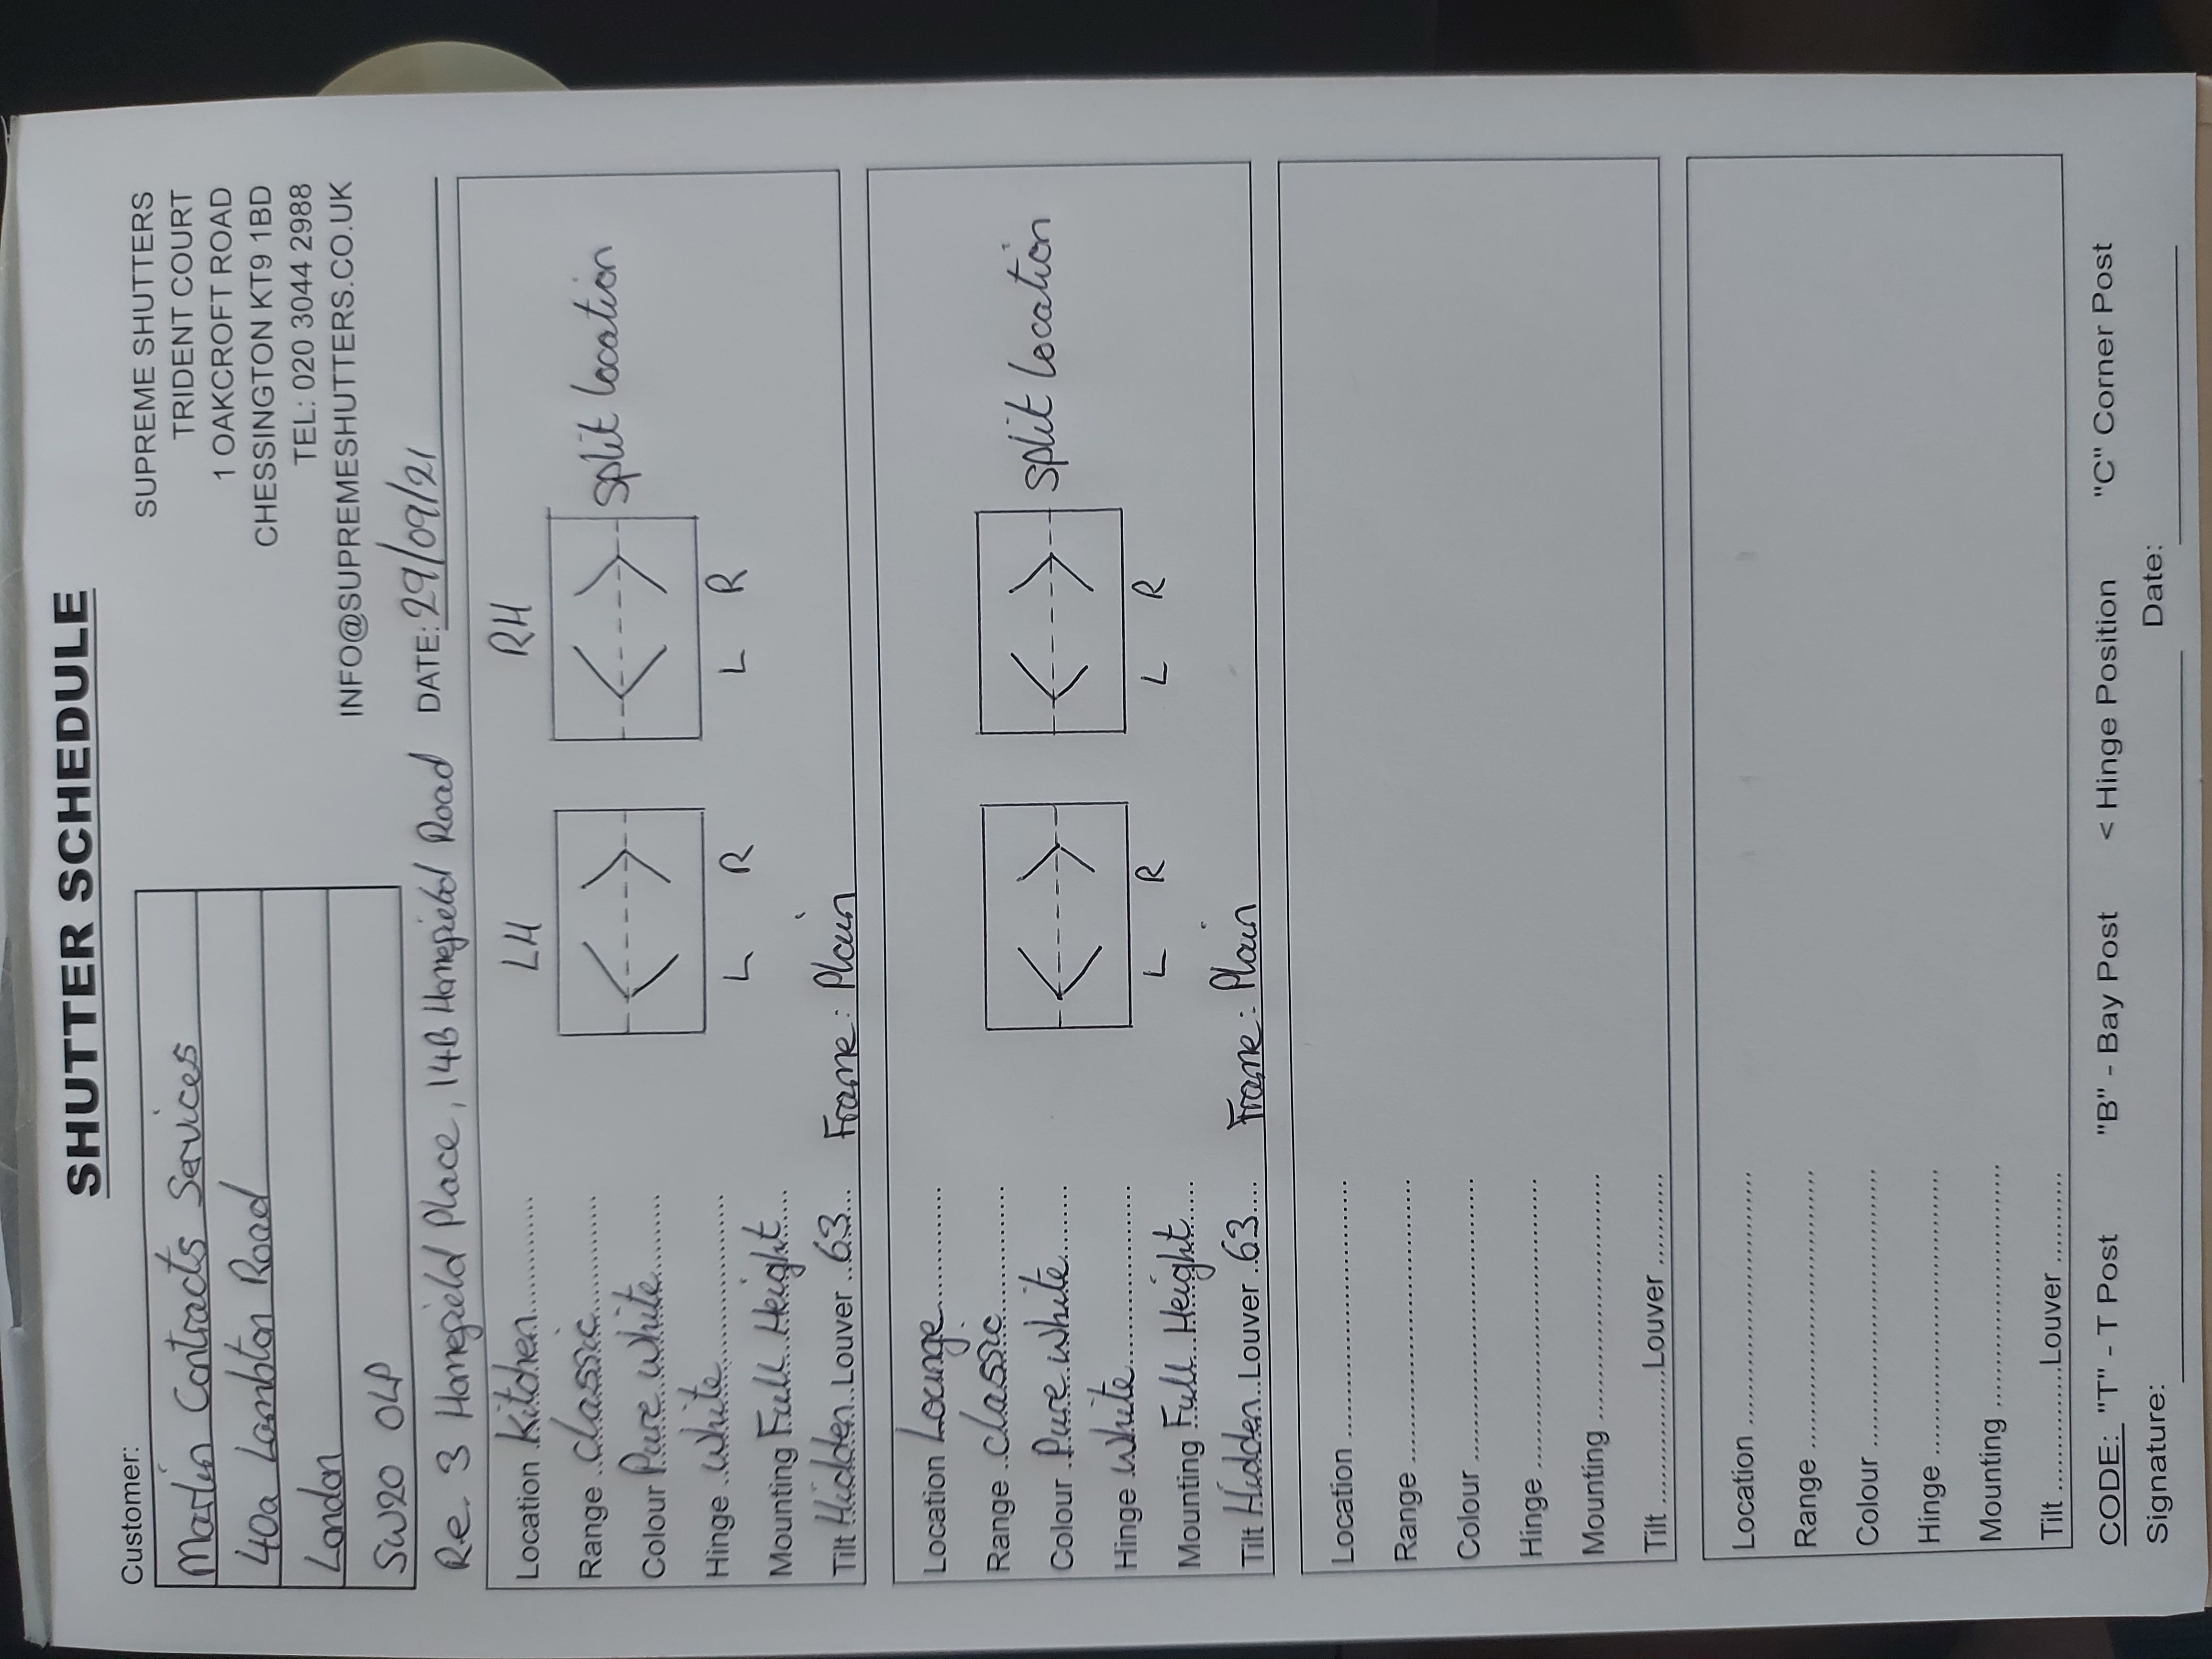 SHUTTER SCHEDULE
Customer:
Martin Contracts Services
40a Lambton Road
London
SW20 0LP
SUPREME SHUTTERS
TRIDENT COURT
1 OAKCROFT ROAD
CHESSINGTON KT9 1BD
TEL: 020 3044 2988
INFO@SUPREMESHUTTERS.CO.UK
Re. 3 Homefield Place, 14B Homefield Road DATE: 29/09/21
LH RH
Location Kitchen
Range Classic
split location
Colour Pure White
Hinge White
L R L R
Mounting Full Height
Tilt Hidden Louver 63 Frame: Plain
Location Lounge
Range Classic
Colour Pure White
split location
Hinge White
L R L R
Mounting Full Height
Tilt Hidden Louver 63 Frame: Plain
Location
Range
Colour
Hinge
Mounting
Tilt Louver
Location
Range
Colour
Hinge
Mounting
Tilt Louver
CODE: "T" - T Post "B" - Bay Post < Hinge Position "C" Corner Post
Signature: Date: